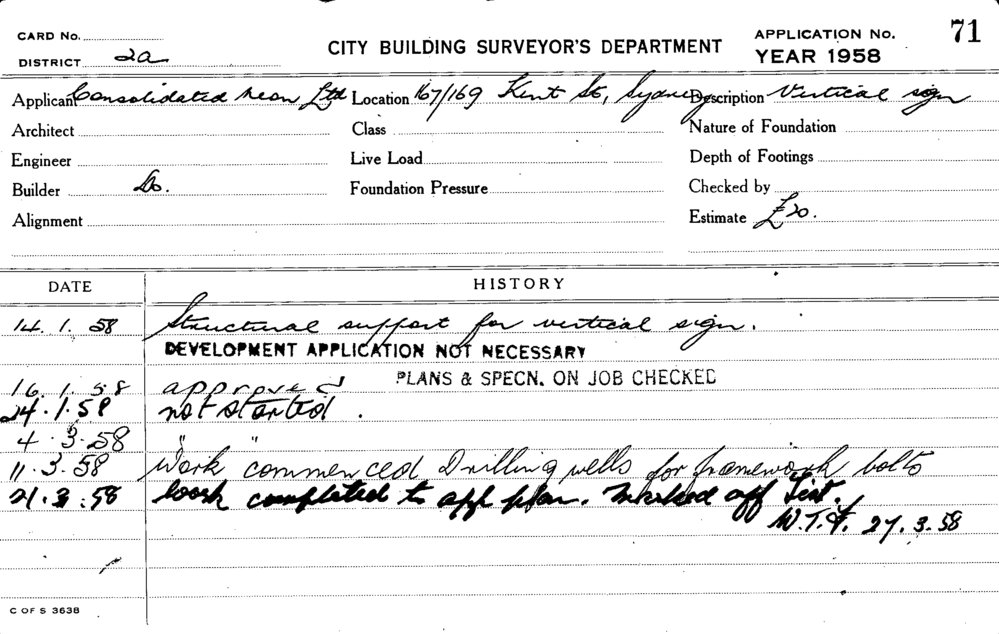 CARD No.
CITY BUILDING SURVEYOR'S DEPARTMENT
APPLICATION No. 71
DISTRICT 2a
YEAR 1958
Applicant Consolidated Neon Ltd Location 167/169 Kent St, Sydney Description Vertical sign
Architect Class Nature of Foundation
Engineer Live Load Depth of Footings
Builder Do. Foundation Pressure Checked by
Alignment Estimate £20.
DATE HISTORY
14.1.58 Structural support for vertical sign.
DEVELOPMENT APPLICATION NOT NECESSARY
16.1.58 approved PLANS & SPECN. ON JOB CHECKED
24.1.58 not started.
4.3.58 " "
11.3.58 Work commenced Drilling wells for framework bolts
21.3.58 Work completed to appl plan. Marked off List.
W.T.F. 27.3.58
C OF S 3638